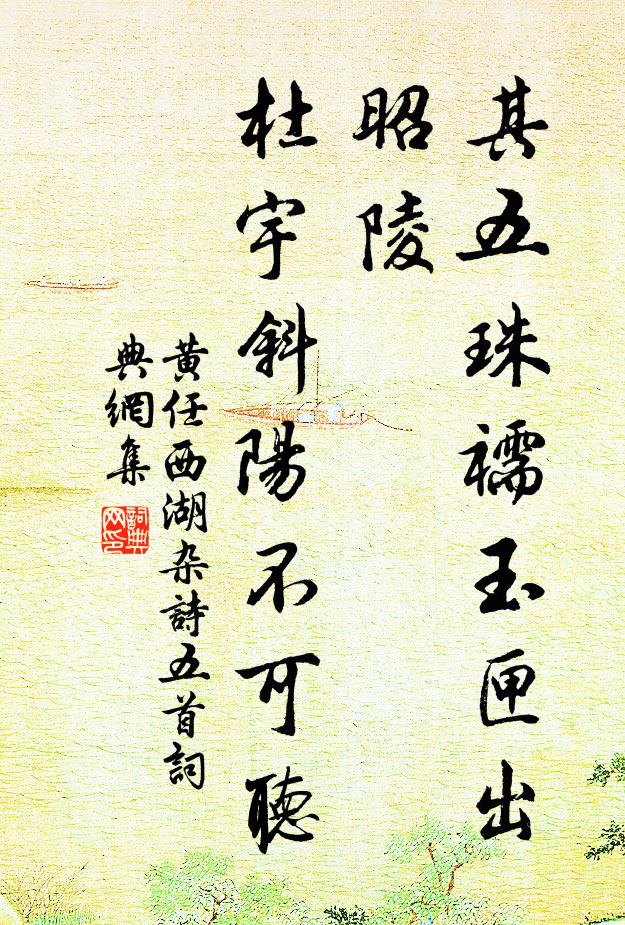 其五珠襦玉匣出
昭陵
杜宇斜陽不可聽
黄任西湖杂詩五首詞
典網集
詞典
网印